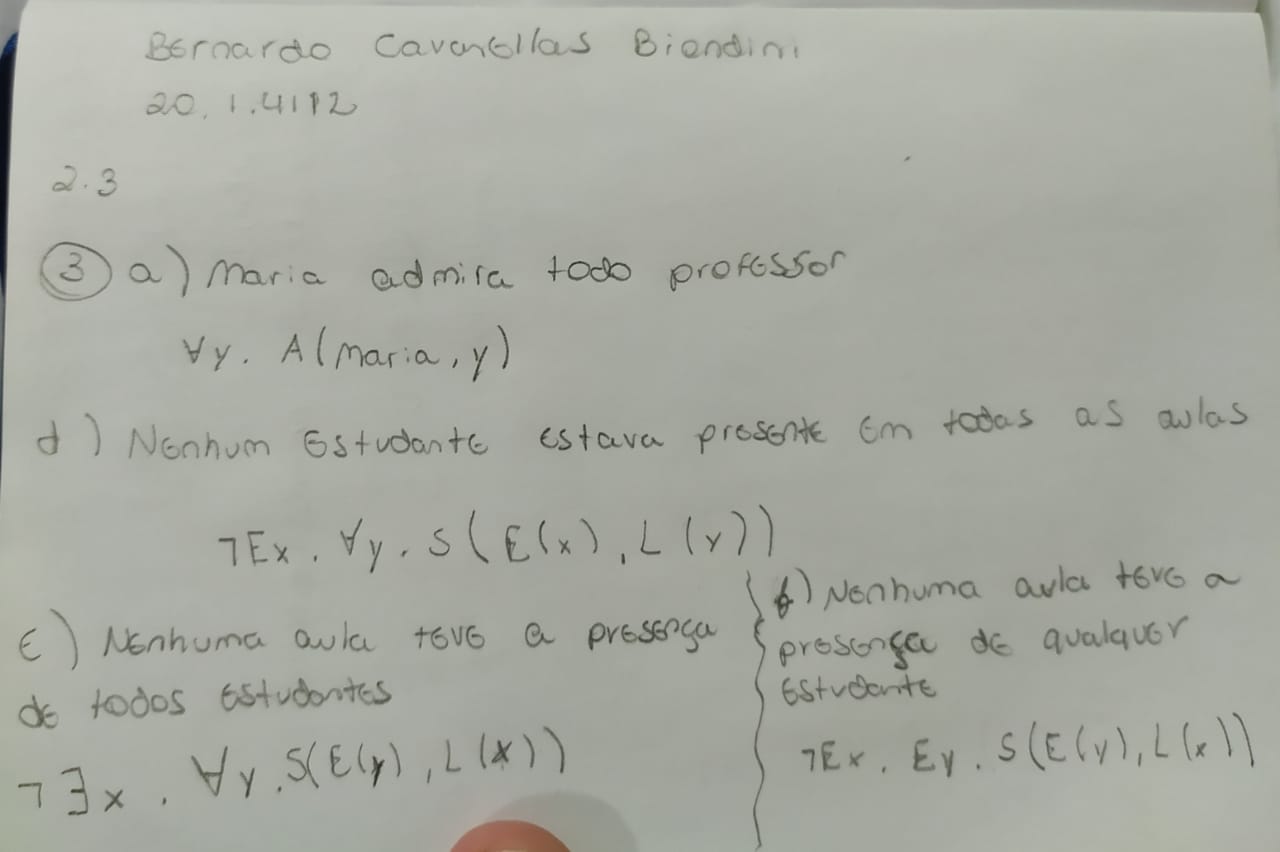 Bernardo Cavanellas Biondini
20.1.4112
2.3
3 a) Maria admira todo professor
∀y. A(Maria, y)
d) Nenhum Estudante estava presente em todas as aulas
¬Ex. ∀y. S(E(x), L(y))
E) Nenhuma aula teve a presença
de todos estudantes
¬∃x. ∀y. S(E(y), L(x))
f) Nenhuma aula teve a
presença de qualquer
Estudante
¬Ex. Ey. S(E(y), L(x))